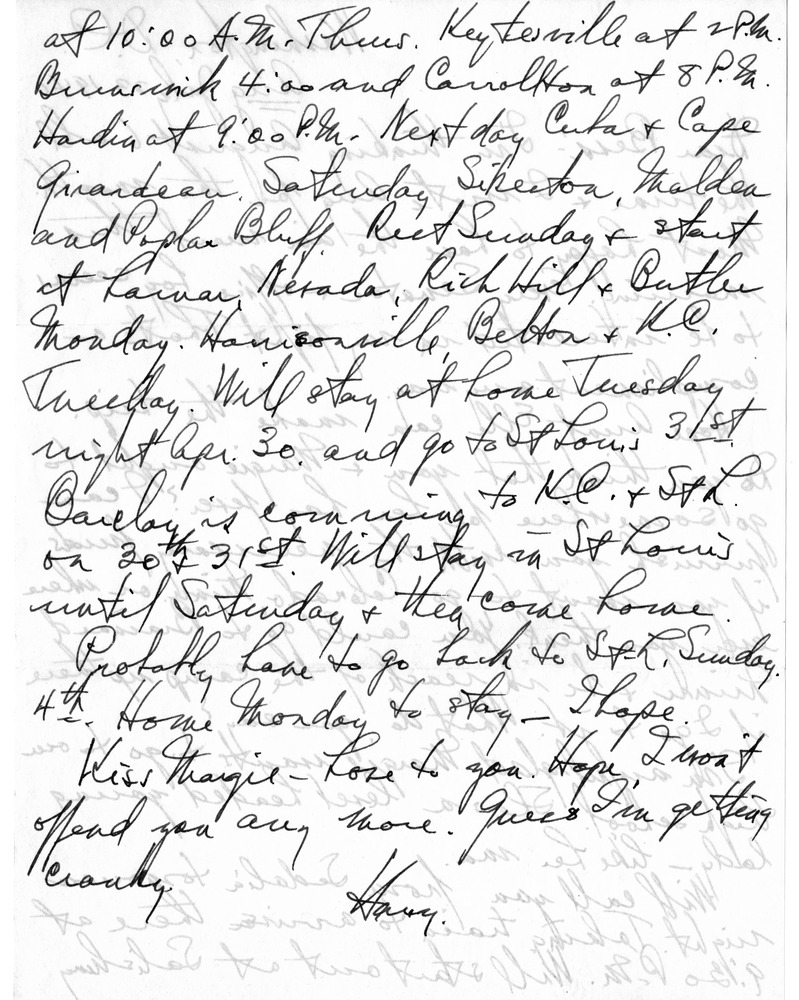 at 10:00 A.M. Thurs. Keytesville at 2 P.M.
Brunswick 4:00 and Carrollton at 8 P.M.
Hardin at 9:00 P.M. Next day Cuba & Cape
Girardeau. Saturday Sikeston, Malden
and Poplar Bluff. Rest Sunday & start
at Lamar, Nevada, Rich Hill & Butler
Monday. Harrisonville, Belton & K.C.
Tuesday. Will stay at home Tuesday
night Apr. 30. and go to St Louis 31st.
Barclay is comming to K.C. & St L.
on 30th & 31st. Will stay in St Louis
until Saturday & then come home.
Probably have to go back to St. L. Sunday.
4th. Home Monday to stay — I hope.
Kiss Margie — Love to you. Hope I won't
offend you any more. Guess I'm getting
cranky.
Harry.